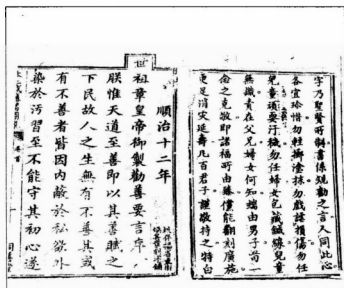 字乃聖賢所制書係規勸之言人同此心
各宜珍惜勿輕擲塗抹勿戲謔損傷勿任
兒童頑耍汙穢勿任婦女包藏鍼線兒童
無識責在父兄婦女何知端由男子苟一
念之克敬即諸福所由臻僅能翻刻廣施
更足消灾延壽凡百君子謹敬持之特白
順治十二年
世
祖章皇帝御製勸善要言序
朕惟天道至善即以其善賦之
下民故人之生無有不善其或
有不善者皆因內蔽於私欲外
染於汚習至不能守其初心遂